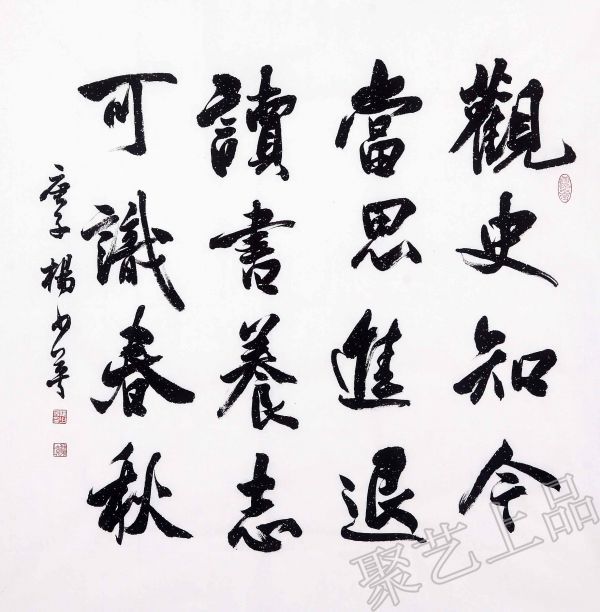 觀史知今
當思進退
讀書養志
可識春秋
庚子楊少萼
聚艺上品